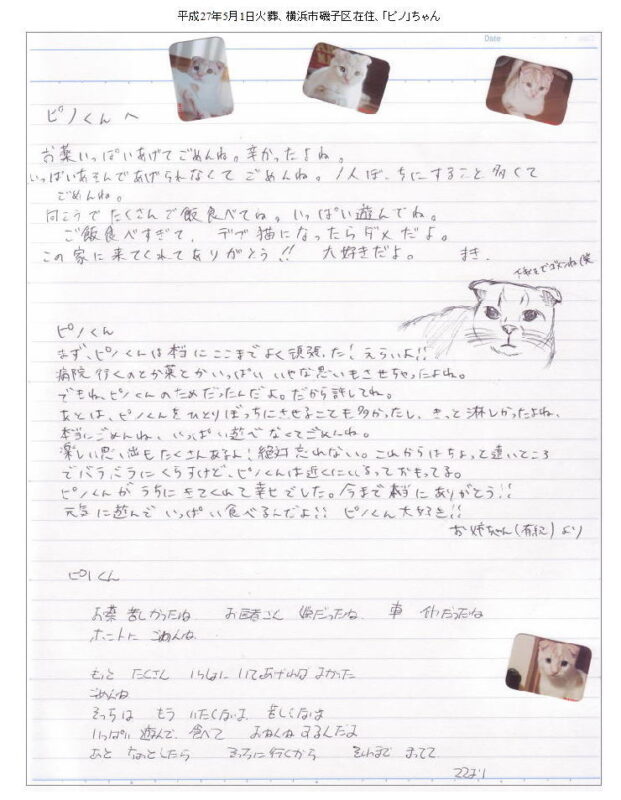 平成27年5月1日火葬、横浜市磯子区在住、「ピノ」ちゃん
Date
ピノくんへ
お薬いっぱいあげてごめんね。辛かったよね。
いっぱいあそんであげられなくてごめんね。1人ぼっちにすること多くて
ごめんね。
向こうでたくさんご飯食べてね。いっぱい遊んでね。
ご飯食べすぎて、デブ猫になったらダメだよ。
この家に来てくれてありがとう!! 大好きだよ。 まき.
下手くそでゴメンね(笑
ピノくん
まず、ピノくんは本当にここまでよく頑張った!えらいよ!!
病院行くのとか薬とかいっぱいいやな思いもさせちゃったよね。
でもね、ピノくんのためだったんだよ。だから許してね。
あとは、ピノくんをひとりぼっちにさせることも多かったし、きっと淋しかったよね、
本当にごめんね、いっぱい遊べなくてごめんね。
楽しい思い出もたくさんあるよ!絶対忘れない。これからはちょっと遠いところ
でバラバラにくらすけど、ピノくんは近くにいるっておもってる。
ピノくんがうちにきてくれて幸せでした。今まで本当にありがとう!!
元気に遊んでいっぱい食べるんだよ!! ピノくん大好き!!
お姉ちゃん(有紀)より
ピノくん
お薬 苦しかったね お医者さん 嫌だったね 車 イヤだったね
ホントに ごめんね
もっと たくさん いっしょに いてあげれば よかった
ごめんね
そっちは もう いたくないよ 苦しくないよ
いっぱい 遊んで 食べて おねんねするんだよ
あと ちょっとしたら そっちに行くから それまで まってて
ママより